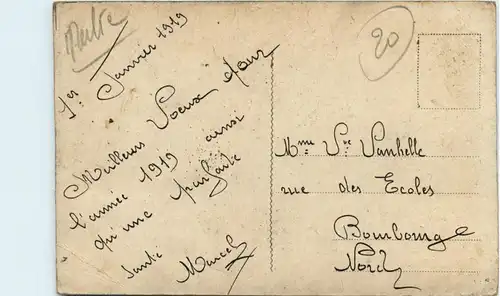 1er Janvier 1919
Meilleurs Voeux pour
l'année 1919 ainsi
qu'une parfaite
Santé
Marcel
20
Mme Vve Vanhelle
rue des Ecoles
Bourbourg
Nord